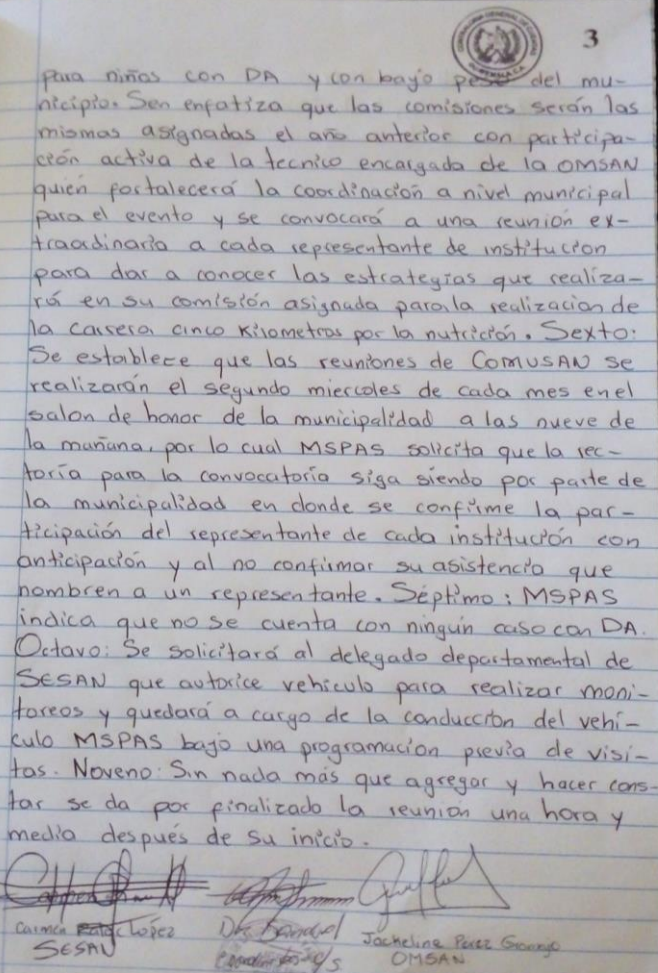 CONTRALORIA GENERAL DE CUENTAS
GUATEMALA, C.A.
3
para niños con DA y con bajo peso del mu-
nicipio. Sen enfatiza que las comisiones serán las
mismas asignadas el año anterior con participa-
ción activa de la tecnico encargada de la OMSAN
quien fortalecerá la coordinación a nivel municipal
para el evento y se convocará a una reunión ex-
traordinaria a cada representante de institucion
para dar a conocer las estrategias que realiza-
rá en su comisión asignada para la realizacion de
la carrera cinco Kilometros por la nutrición. Sexto:
Se establece que las reuniones de COMUSAN se
realizarán el segundo miercoles de cada mes en el
salon de honor de la municipalidad a las nueve de
la mañana, por lo cual MSPAS solicita que la rec-
toría para la convocatoría siga siendo por parte de
la municipalidad en donde se confirme la par-
ticipación del representante de cada institución con
anticipación y al no confirmar su asistencia que
nombren a un representante. Séptimo: MSPAS
indica que no se cuenta con ningún caso con DA.
Octavo: Se solicitará al delegado departamental de
SESAN que autorice vehiculo para realizar moni-
toreos y quedará a cargo de la conducción del vehí-
culo MSPAS bajo una programacion previa de visi-
tas. Noveno: Sin nada más que agregar y hacer cons-
tar se da por finalizado la reunión una hora y
media después de su inicio.
Carmen López
SESAN
Jackeline Pérez
OMSAN